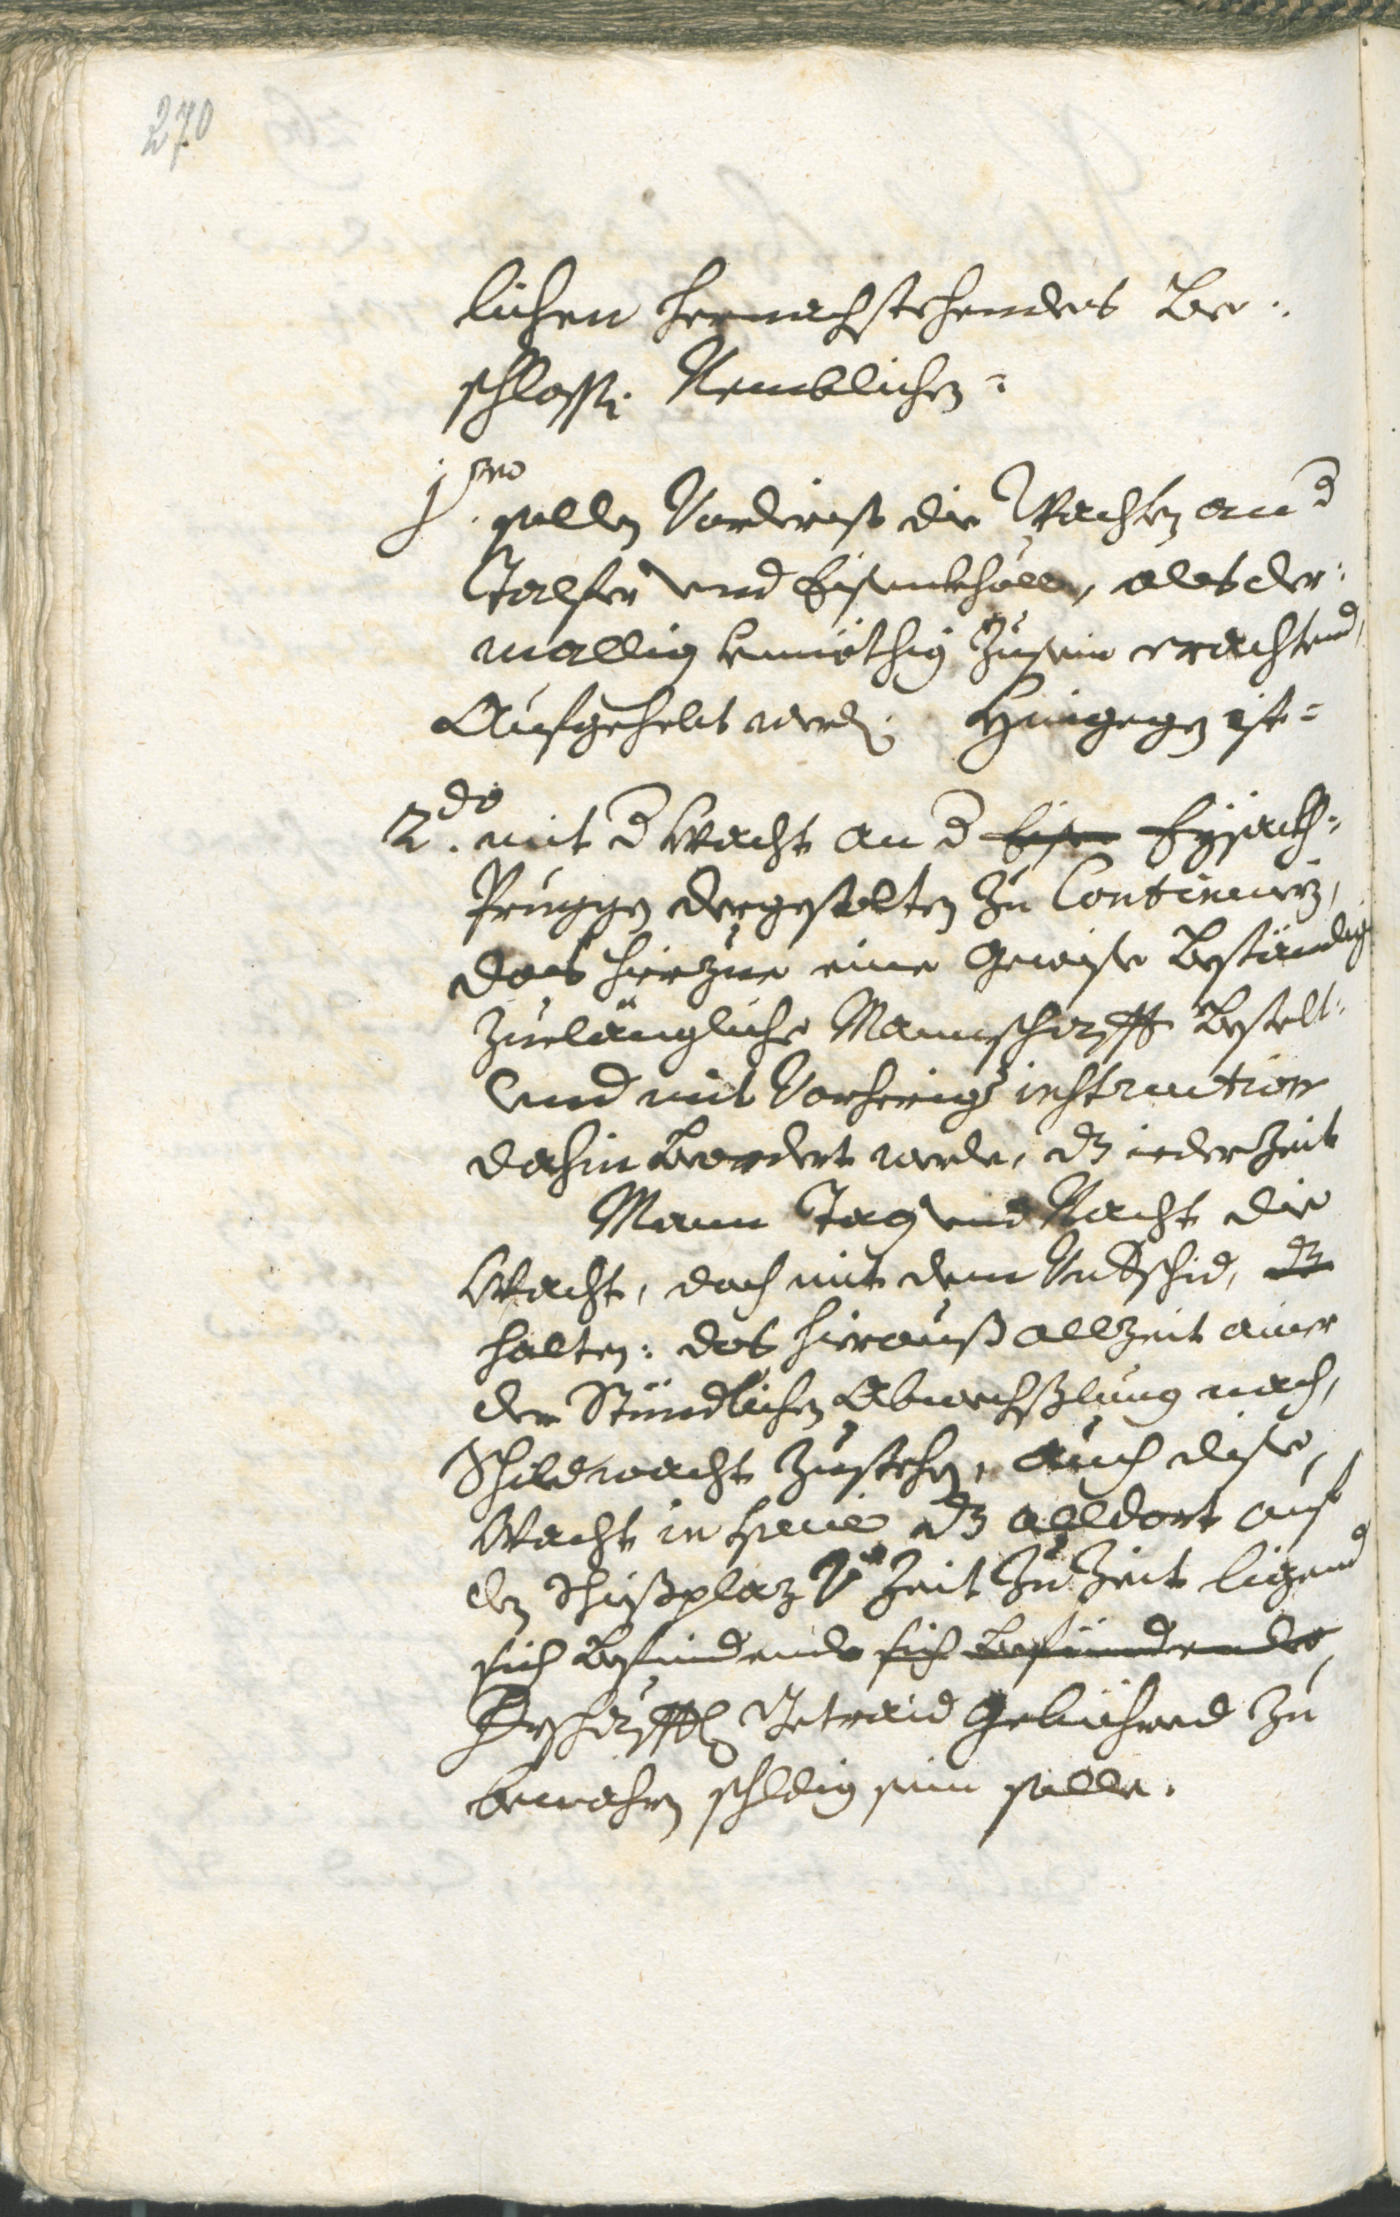 270
lichen hernachstehendes Be:
schlossen Nemblichen:
1mo
sollen Vorderist die Wachten an d
Talfer und Eisenkhöll, als der:
mallig unnöthig zu sein erachtend,
Aufgehebt werden. Hingegen ist:
2do. mit d Wacht an d Eisa Eysackh:
Pruggen dergestalten zu Continuirn,
das hierzue eine gewise beständig
zuelängliche Mannschafft bestelt:
und mit Vorheriger instruction
dahin beordert werde, dz iederzeit
Mann Tag und Nacht die
Wacht, doch mit dem Undschid, dz
halten: das hierauß allzeit ainer
der Stündlichen Abwechßlung nach,
Schildwacht zustehen, auch dise
Wacht in specie dz alldort auf
den Schießplaz Von Zeit zu Zeit ligend
sich befindende sich befündende
Getraid gebührend zu
bewahren schldig sein solle.